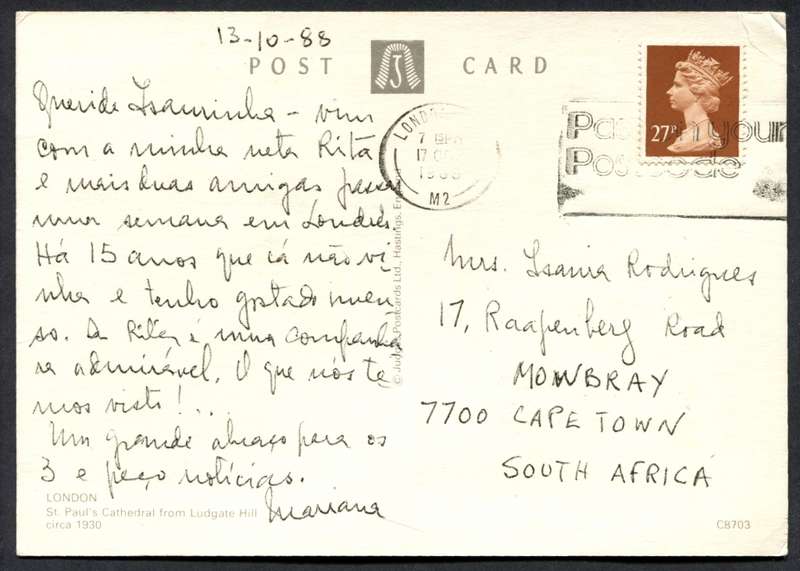 13-10-88
POST CARD
Queride Isaurinha - vim
com a minha neta Rita
e mais duas amigas passar
uma semana em Londres.
Há 15 anos que cá não vi
nha e tenho gostado imen
so. A Rita é uma companhei
ra admirável. O que nós te
mos visto!..
Um grande abraço para os
3 e peço notícias.
Mariana
LONDON
St. Paul's Cathedral from Ludgate Hill
circa 1930
© Judges Postcards Ltd., Hastings,
LONDON
7
17 OC
M2
27P
your
Postcode
Mrs. Isaura Rodrigues
17, Raapenberg Road
MOWBRAY
7700 CAPE TOWN
SOUTH AFRICA
C8703